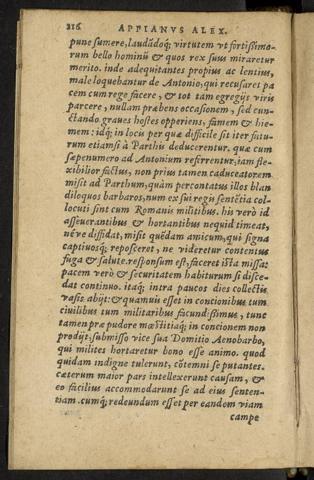 216 APPIANVS ALEX.
pune sumere, laudādoq; virtutem vt fortissimo-
rum bello hominū & quos rex suus miraretur
merito. inde adequitantes propius ac lentius,
male loquebantur de Antonio, qui recusaret pa
cem cum rege facere, & tot tam egregijs viris
parcere, nullam præbens occasionem, sed cun-
ctando graues hostes opperiens, famem & hie-
mem: idq; in locis per quæ difficile sit iter futu-
rum etiamsi à Parthis deducerentur. quæ cum
sæpenumero ad Antonium referrentur, iam fle-
xibilior factus, non prius tamen caduceatorem
misit ad Parthum, quàm percontatus illos blan
diloquos barbaros, num ex sui regis sentētia col-
locuti sint cum Romanis militibus. his verò id
asseuerantibus & hortantibus nequid timeat,
néve diffidat, misit quēdam amicum, qui signa
captiuosq; reposceret, ne videretur contentus
fuga & salute. responsum est, faceret ista missa:
pacem verò & securitatem habiturum si disce-
dat continuo. itaq; intra paucos dies collectis
vasis abijt: & quamuis esset in concionibus tum
ciuilibus tum militaribus facundissimus, tunc
tamen præ pudore mœstitiaq; in concionem non
prodijt, submisso vice sua Domitio Aenobarbo,
qui milites hortaretur bono esse animo. quod
quidam indigne tulerunt, cōtemni se putantes.
cæterum maior pars intellexerunt causam, &
eo facilius accommodarunt se ad eius senten-
tiam. cumq; redeundum esset per eandem viam
campe